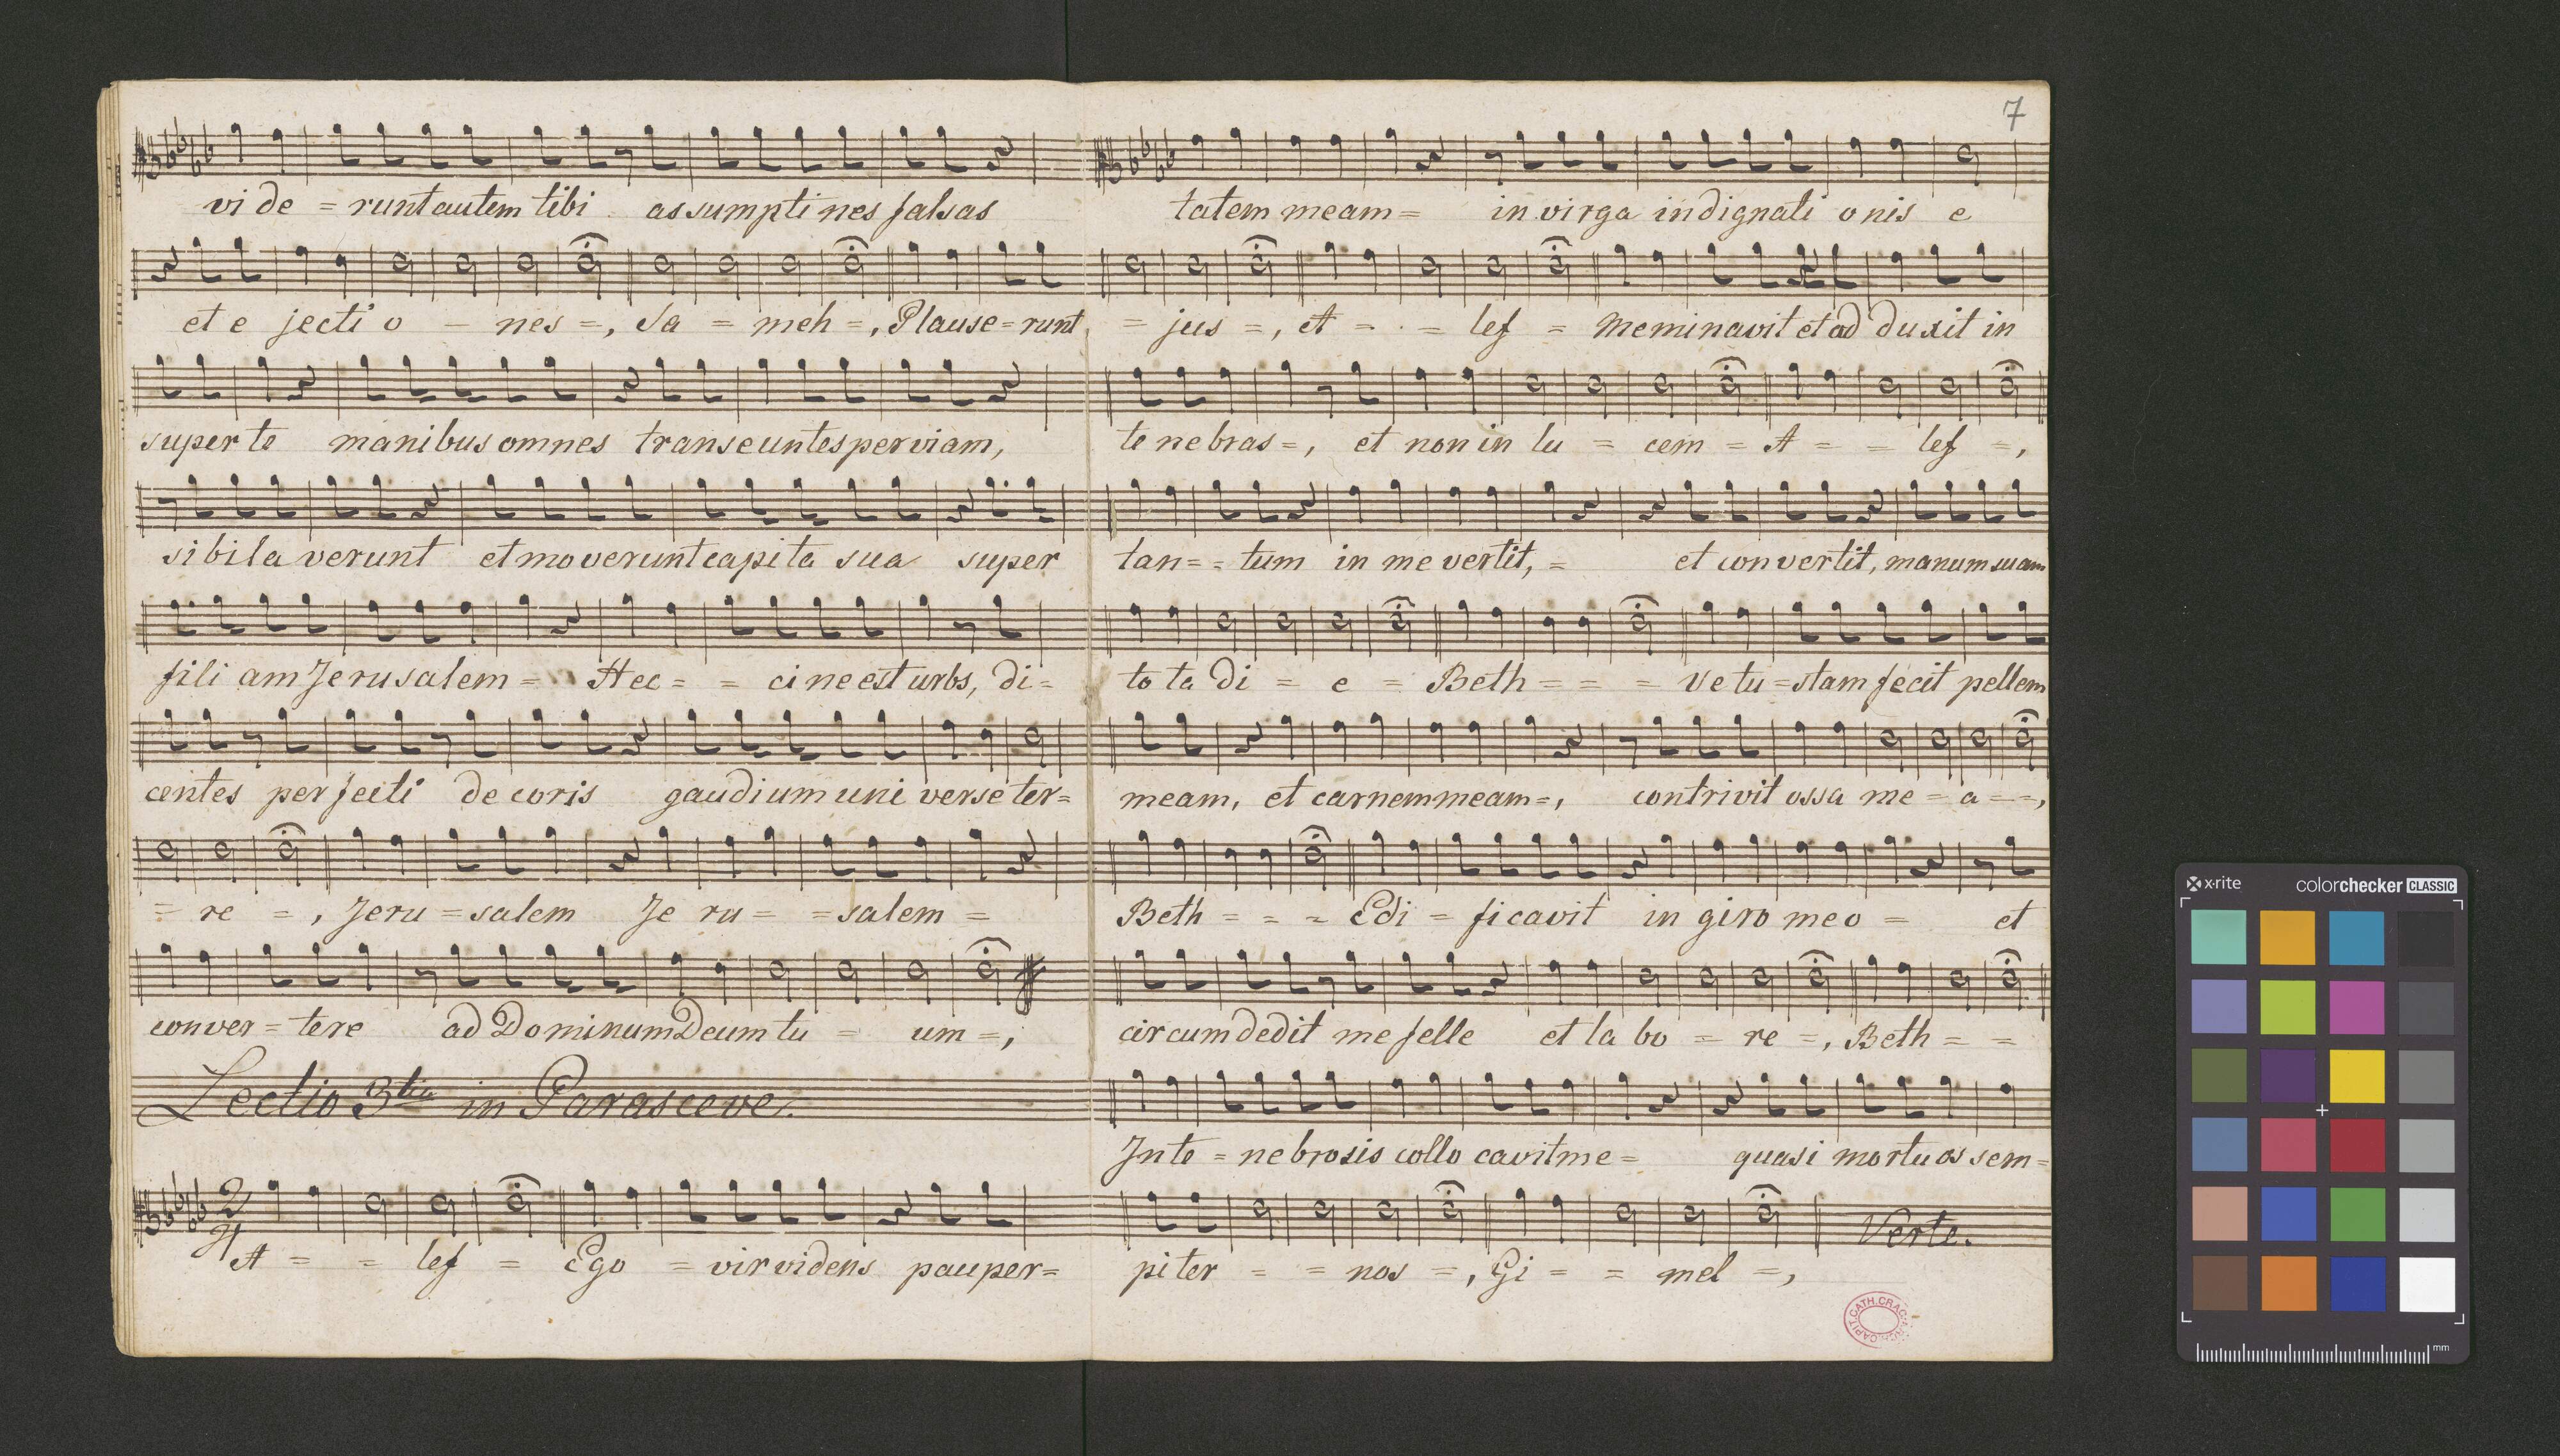 vi de = runt autem tibi assumpti nes falsas
et e jecti o = nes =, Sa = meh =, Plause = runt
super te manibus omnes transeuntes per viam,
sibila verunt et moverunt capita sua super
fili am Jerusalem = Hec = = ci ne est urbs, di =
centes per fecti de coris gaudium uni verse ter =
= re = , Jeru = salem Je ru = = salem =
conver = tere ad Dominum Deum tu = um =,
Lectio 3tia in Parasceve.
2/4
A = = lef = Ego = vir videns pauper =
7
tatem meam = in virga indignati onis e
= jus =, A = - = lef = Me minavit et ad duxit in
te nebras =, et non in lu = cem = A = = lef =,
tan = = tum in me vertit, = et con vertit, manum suam
to ta di = e = Beth = = = Ve tu = stam fecit pellem
meam, et carnem meam =, contrivit ossa me = a = =,
Beth = = = Edi = ficavit in giro meo = et
circumdedit me felle et la bo = re =, Beth = =
In te = nebrosis collo cavit me = quasi mortuos sem =
pi ter = = nos =, Gi = = mel =,
Verte.
x-rite colorchecker CLASSIC
mm